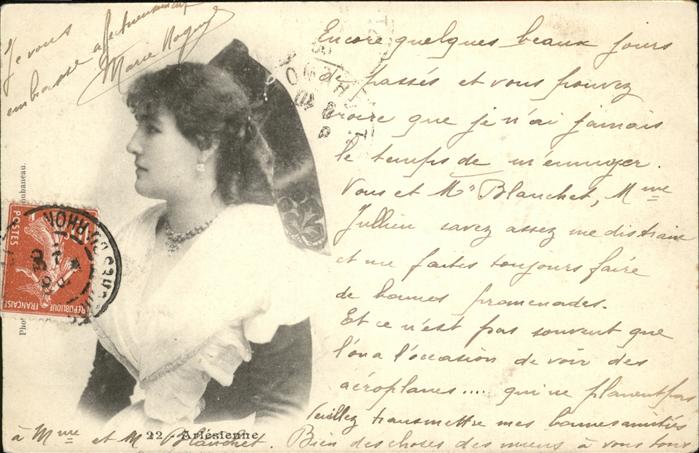 Encore quelques beaux jours
de passés et vous pouvez
croire que je n'ai jamais
le temps de m'ennuyer.
Vous et Mr Blanchet, Mme
Jullien savez assez me distraire
et me faites toujours faire
de bonnes promenades.
Et ce n'est pas souvent que
l'on a l'occasion de voir des
aéroplanes .... qui ne planent pas
Veuillez transmettre mes bonnes amitiés
à Mme et M Blanchet. Bien des choses des miens à vous tous
Je vous
embrasse affectueusement
Marie
22 - Arlésienne
POSTES
RÉPUBLIQUE FRANÇAISE